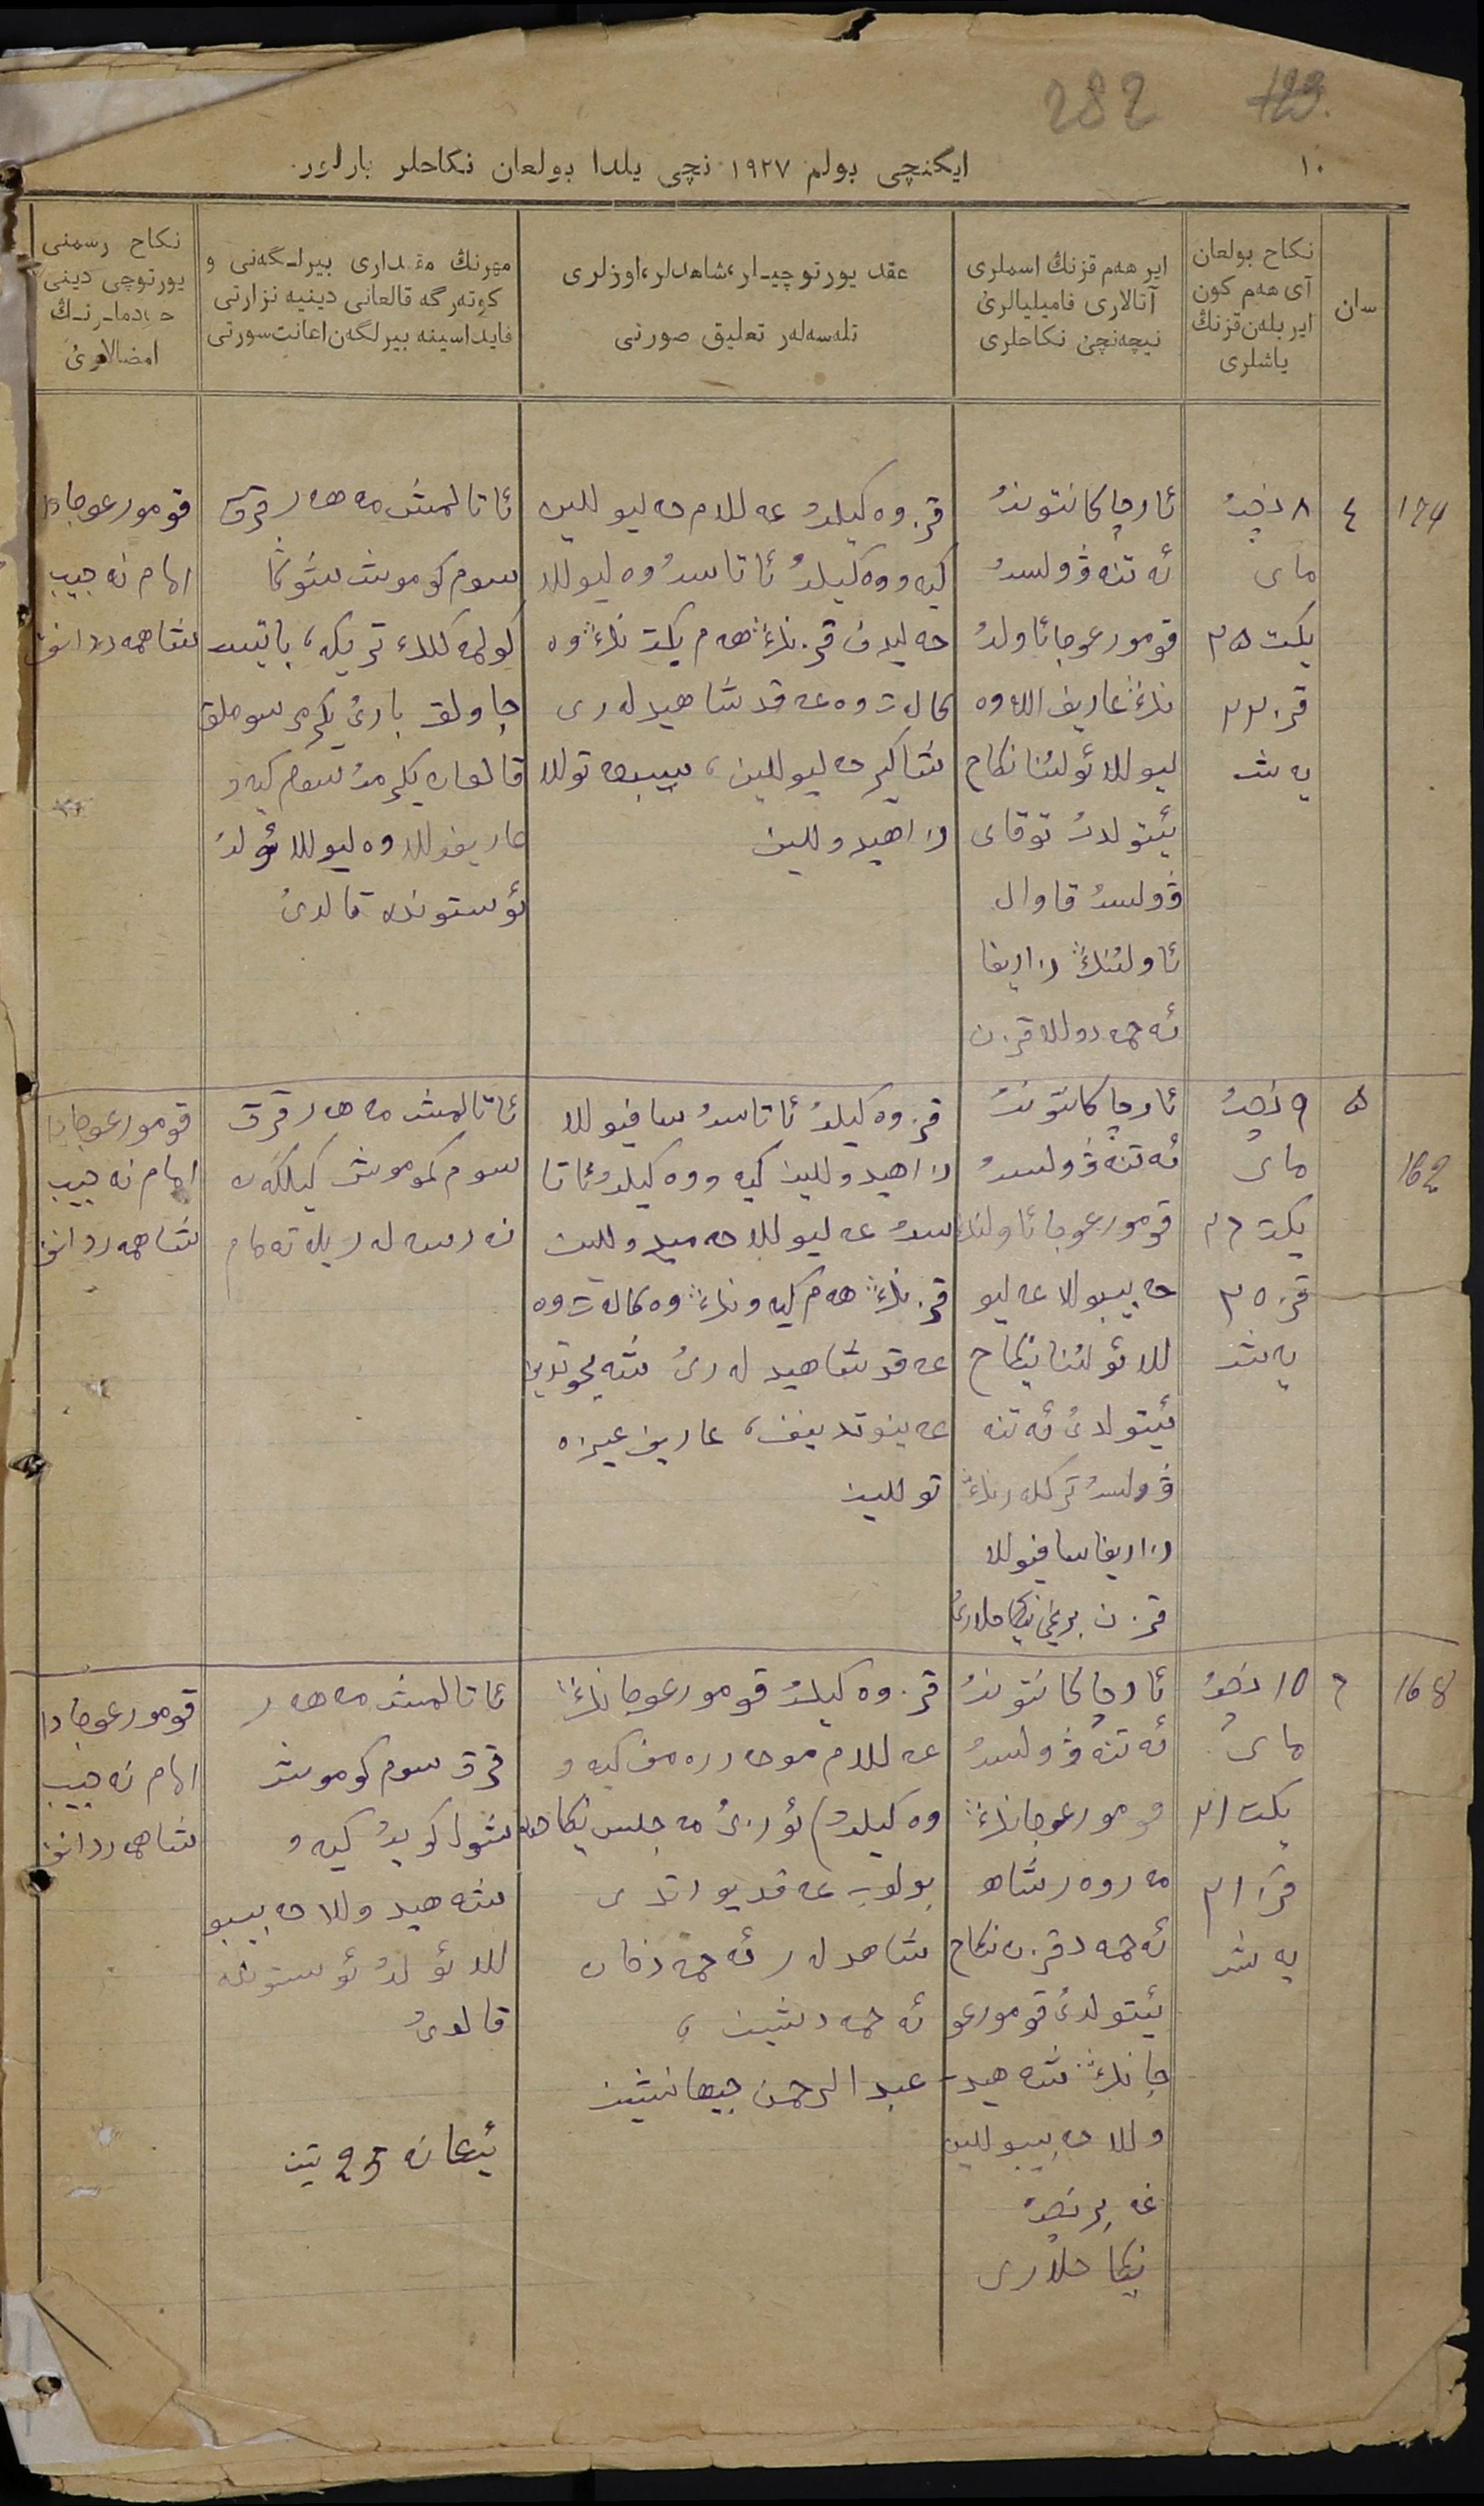 282 123.
١٠ ايكنچی بولم ١٩٢٧ نچی يلدا بولعان نكاحلر بارلور.
سان
نكاح بولعان
آی هەم كون
اير بلەن قزنڭ
ياشلری
اير هەم قزنڭ اسملری
آتالاری فاميليالری
نيچەنچی نكاحلری
عقد يورتوچيلر، شاهدلر، اوزلری
تلەسەلەر تعليق صورتی
مهرنڭ مقداری بيرلگەنی و
كوتەرگە قالعانی دينيە نزارتی
فايداسينە بيرلگەن اعانت سورتی
نكاح رسمنی
يورتوچی دينی
خادملرنڭ
امضالاری
174
٤
٨ نچی
مای
يكت ٢٥
قز ٢٢
يەش
ئارچا كانتونی
ئەتنە ۋولسی
قومورعوجا ئاولی
نڭ عاريف اللە وە
ليوللا ئولنا نكاح
ئيتولدی توقای
ۋولسی قاوال
ئاولنڭ زاريفا
ئەحمەدوللا قزن
قز وەكيلی عەللام حەليوللين
كيەو وەكيلی ئاتاسی وەليوللا
حەليلف قزنڭ هەم يكتنڭ وە
كالەت وە عەقد شاهيدلەری
شاكير حەليوللين، حبيبتوللا
زاهيدوللين
ئاتالمش مەهەر قرق
سوم كوموش شوڭا
كولمەكلك تريكە، باتيس
جاولق باری يكرمی سوملق
قالعان يكرمی سوم كيەو
عاريفوللا وەليوللا ئولی
ئوستوندە قالدی
قومورعوجا
امام نەجيب
شاهمەردانف
162
٥
٩ نچی
مای
يكت ٢٦
قز ٢٥
يەش
ئارچا كانتونی
ئەتنە ۋولسی
قومورعوجا ئاولنڭ
حەبيبوللا عەليو
للا ئولنا نيكاح
ئيتولدی ئەتنە
ۋولسی تركلەرنڭ
زاريفا سافيوللا
قزن برنچی نيكاحلاری
قز وەكيلی ئاتاسی سافيوللا
زاهيدوللين كيەو وەكيلی ئاتا
سی عەليوللا حەميدوللين
قزنڭ هەم كيەونڭ وەكالەت وە
عەقد شاهيدلەری
عەينوتدينف، عاريف عيززە
توللين
ئاتالمش مەهەر قرق
سوم كوموش كيلگەن
نەرسەلەر بلە تەمام
قومورعوجا
امام نەجيب
شاهمەردانف
168
٦
١٥ نچی
مای
يكت ٢١
قز ٢١
يەش
ئارچا كانتونی
ئەتنە ۋولسی
قومورعوجانڭ
مەروەرشاه
ئەحمەد قزن نكاح
ئيتولدی قومورعو
جانڭ شەهيد
وللا حەبيبوللين
عە برنچی
نيكاحلاری
قز وەكيلی قومورعوجانڭ
عەللام موحەررەمف كيەو
وەكيلی) ئوزی مەجلس نيكاحدا
بولوب عەقد يوراتدی
شاهدلەر ئەحمەدخان
ئەحمەدشين،
عبدالرحمن جيهانشين
ئاتالمش مەهەر
قرق سوم كوموش
شول كويی كيەو
شەهيدوللا حەبيبو
للا ئولی ئوستوندە
قالدی
ئيعانە 25 تين
قومورعوجا
امام نەجيب
شاهمەردانف